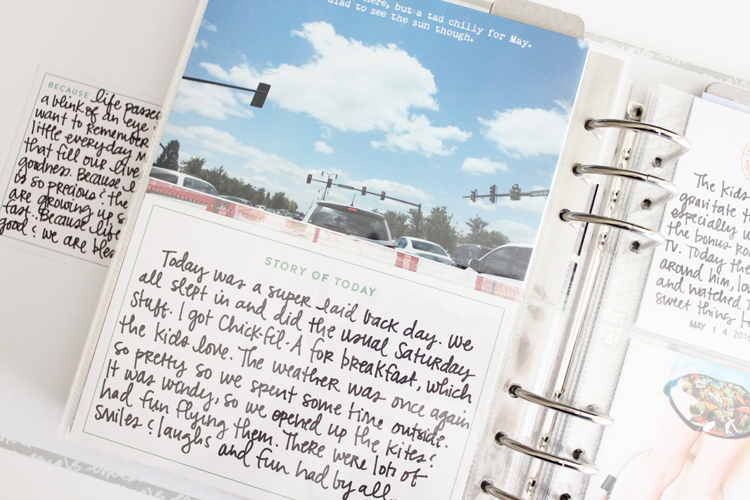 BECAUSE life passes
a blink of an eye.
want to remember
little everyday
that fill our live
goodness. Because
us so precious & the
are growing up s
fast. Because life
good & we are bles
here, but a tad chilly for May.
glad to see the sun though.
STORY OF TODAY
Today was a super laid back day. We
all slept in and did the usual Saturday
stuff. I got Chick-fil-A for breakfast, which
the kids love. The weather was once again
so pretty so we spent some time outside.
It was windy, so we opened up the kites &
had fun flying them. There were lots of
smiles & laughs and fun had by all.
The kids
gravitate
especially w
the bonus ro
TV. Today the
around him, lo
and watched
sweet things
MAY 14 201